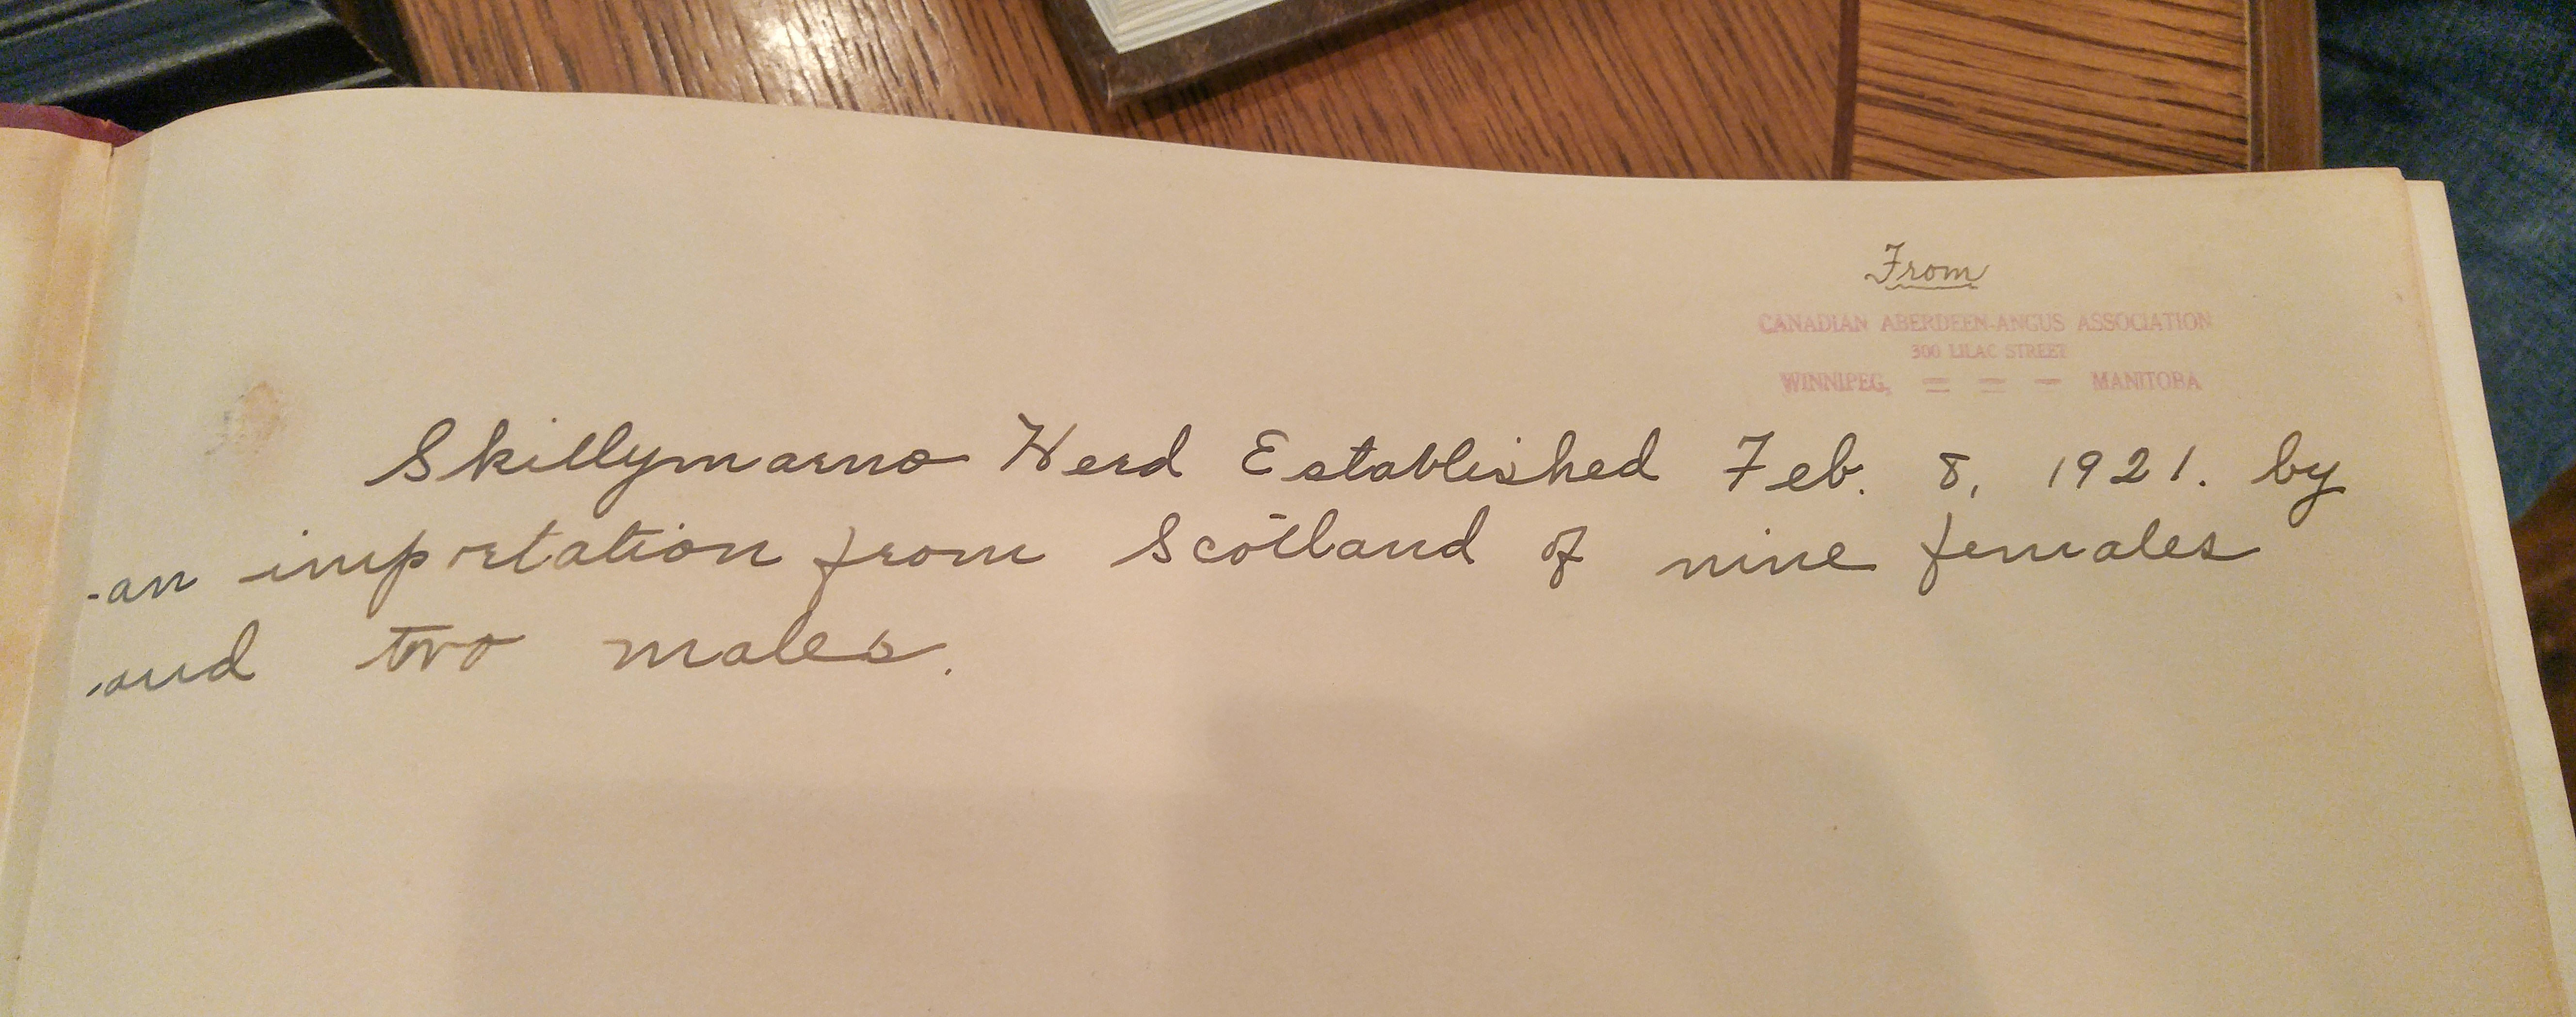 From
CANADIAN ABERDEEN-ANGUS ASSOCIATION
300 LILAC STREET
WINNIPEG, = = - MANITOBA
Skillymarno Herd Established Feb. 8, 1921. by
an importation from Scotland of nine females
and two males.